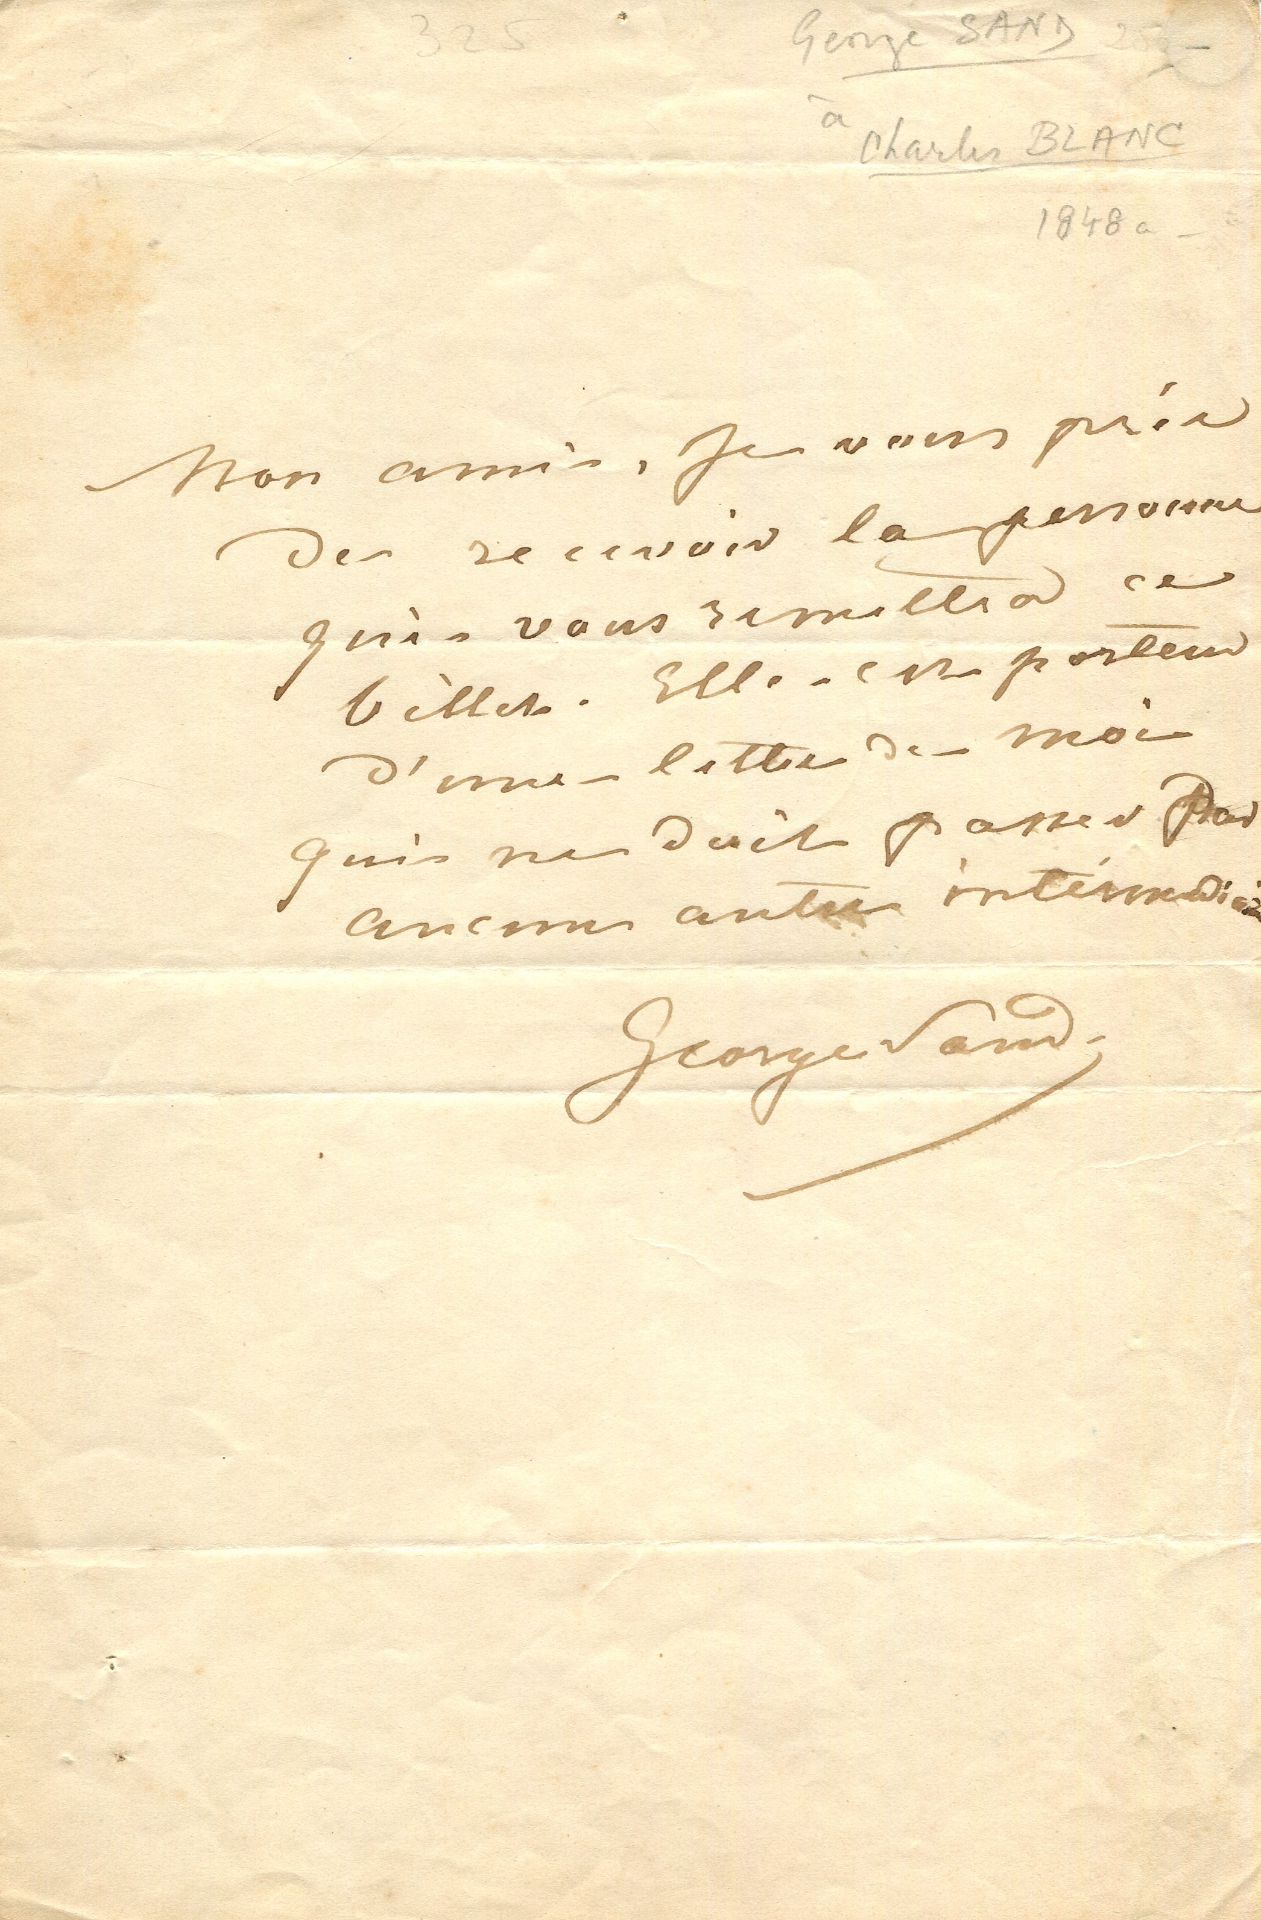 325
George SAND
à
Charles BLANC
1848
Mon ami, Je vous prie
de recevoir la personne
qui vous remettra ce
billet. Elle est porteur
d'une lettre de moi
qui ne doit passer par
aucun autre intérmédiaire
George Sand.